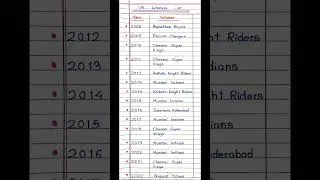 IPL Winners List
Year Winner
2008 Rajasthan Royals
2009 Deccan Chargers
2010 Chennai Super
Kings
2011 Chennai Super
Kings
2012 Kolkata Knight Riders
2013 Mumbai Indians
2014 Kolkata Knight Riders
2015 Mumbai Indians
2016 Sunrisers Hyderabad
2017 Mumbai Indians
2018 Chennai Super
Kings
2019 Mumbai Indians
2020 Mumbai Indians
2021 Chennai Super
Kings
2022 Gujarat Titans
2012
2013
2014
2015
2016
Riders
dians
Riders
ians
derabad